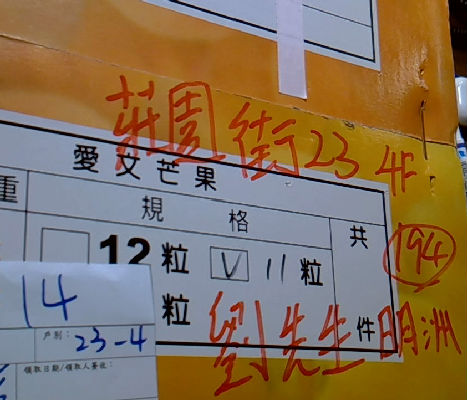 莊園街23 4F
愛文芒果
重 規格 共
12粒 V 11粒
194
粒 件
劉先生 明洲
14
戶別: 23-4
領取日期/領取人簽收: